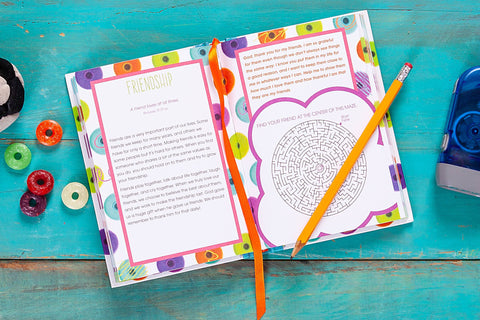 FRIENDSHIP
A friend loves at all times.
Friends are a very important part of our lives. Some
friends we keep for many years, and others we
have for only a short time. Making friends is easy for
some people but it's hard for others. When you find
someone who shares a lot of the same values as
you do, you should hold on to them and try to grow
your friendship.
Friends play together, talk about life together, laugh
together, and cry together. When we truly love our
friends, we choose to believe the best about them,
and we work to make the friendship last. God gave
us a huge gift when he gave us friends. We should
remember to thank him for that daily!
God, thank you for my friends. I am so grateful
for them even though we don't always see things
the same way. I know you put them in my life for
a good reason, and I want to keep them close to
me in whatever ways I can. Help me to show them
how much I love them and how thankful I am that
they are my friends.
FIND YOUR FRIEND AT THE CENTER OF THE MAZE.
START